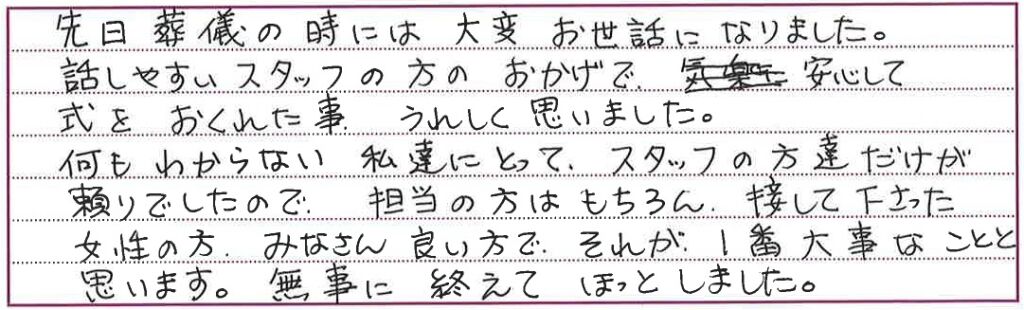 先日葬儀の時には大変お世話になりました。
話しやすいスタッフの方のおかげで、安心して
式をおくれた事、うれしく思いました。
何もわからない私達にとって、スタッフの方達だけが
頼りでしたので、担当の方はもちろん、接して下さった
女性の方、みなさん良い方で、それが、1番大事なことと
思います。無事に終えてほっとしました。